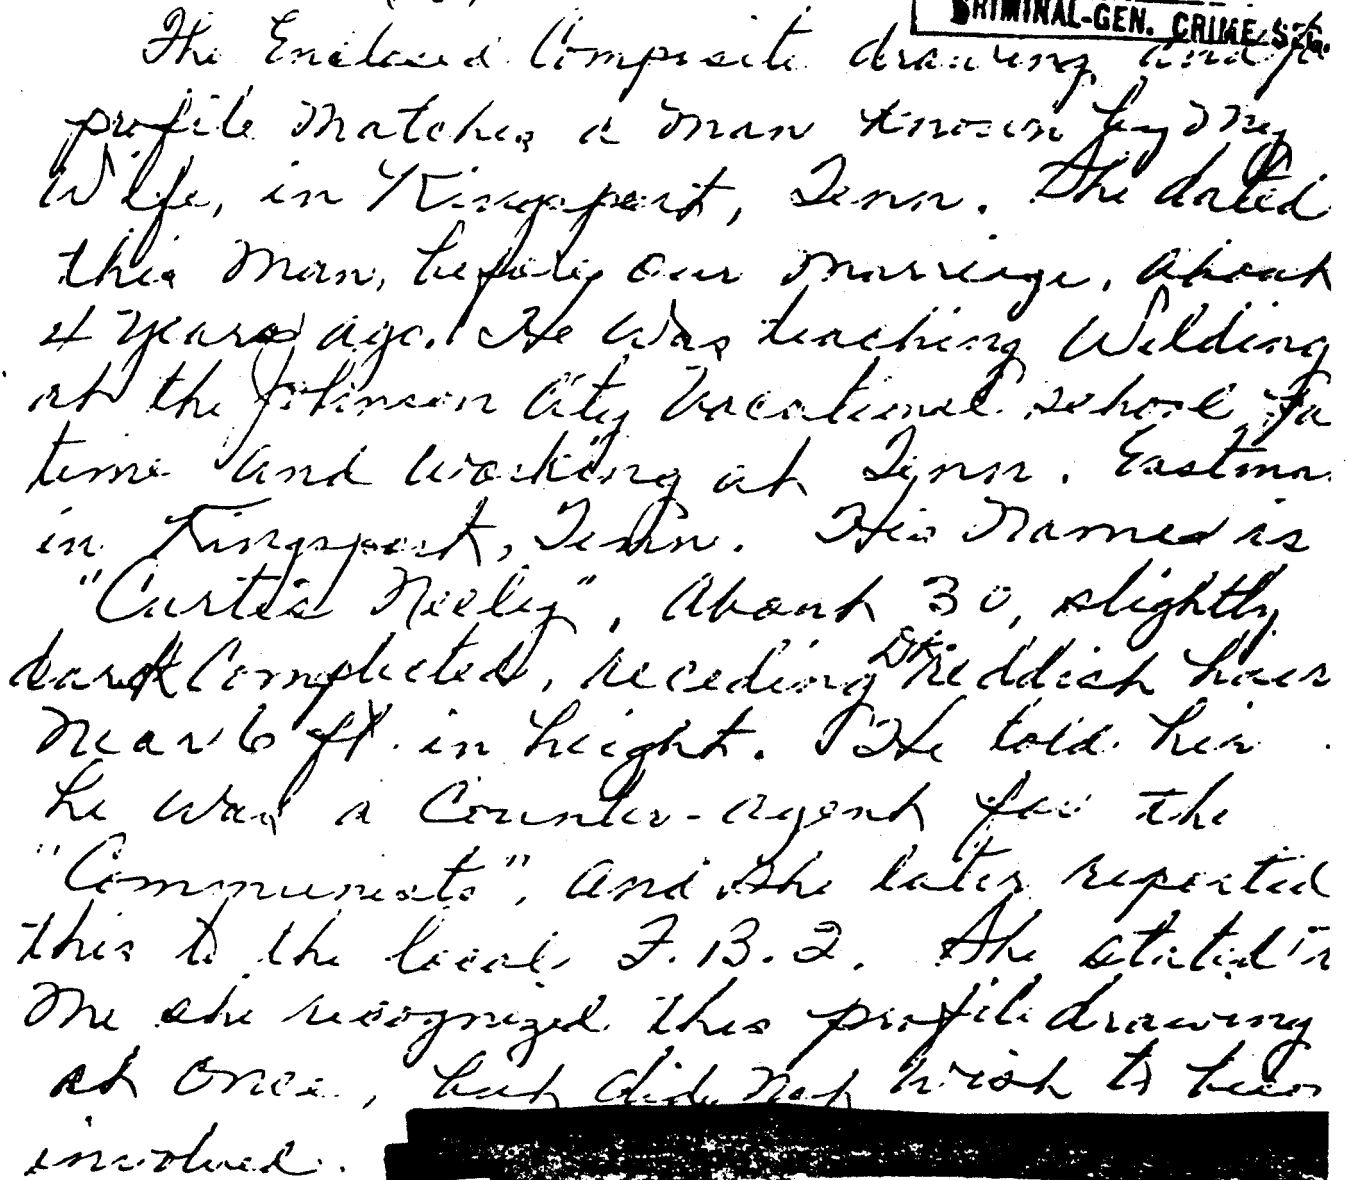 CRIMINAL-GEN. CRIME SEC.
The Enclosed Composite drawing and
profile matches a man known by my
Wife, in Kingsport, Tenn. She dated
this man, before our marriage, about
4 years ago. He was teaching Welding
at the Johnson City Vocational school,
time and working at Tenn. Eastma
in Kingsport, Tenn. His Named is
"Curtis Neeley", About 30, slightly
dark Complected, receding Dk. reddish hair
Near 6 ft. in height. He told her
he was a Counter-agent for the
"Communists", and she later reported
this to the local F.B.I. She stated to
Me she recognized this profile drawing
at once, but did not wish to
involved.